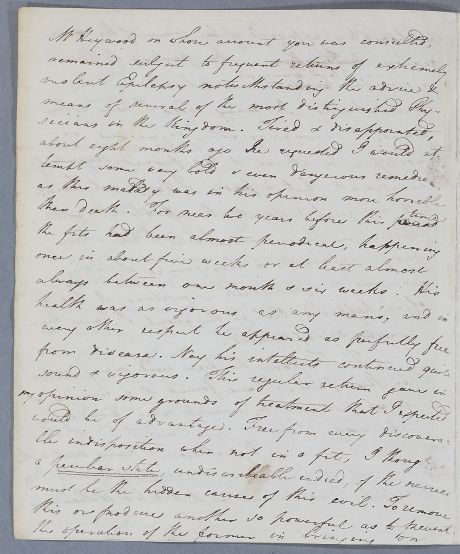 Mr Heywood on whose account you was consulted,
remained subject to frequent returns of extremely
violent Epilepsy notwithstanding the advice &
means of several of the most distinguished Phy-
sicians in the Kingdom. Tired & disappointed,
about eight months ago he requested I would at
tempt some very bold & even dangerous remedies
as this malady was in his opinion more horrible
than death. For near two years before this time
the fits had been almost periodical, happening
once in about five weeks or at least almost
always between one month & six weeks. His
health was as vigorous as any mans, and in
every other respect he appeared as perfectly free
from disease. Nay his intellects continued quite
sound & vigorous. This regular return gave in
my opinion some grounds of treatment that I expected
would be of advantage. Free from every discovera-
ble indisposition when not in a fit, I thought
a peculiar state, undiscernible indeed, of the nerves
must be the hidden causes of this evil. To remove
this or produce another so powerful as to prevent
the operation of the former in bringing on